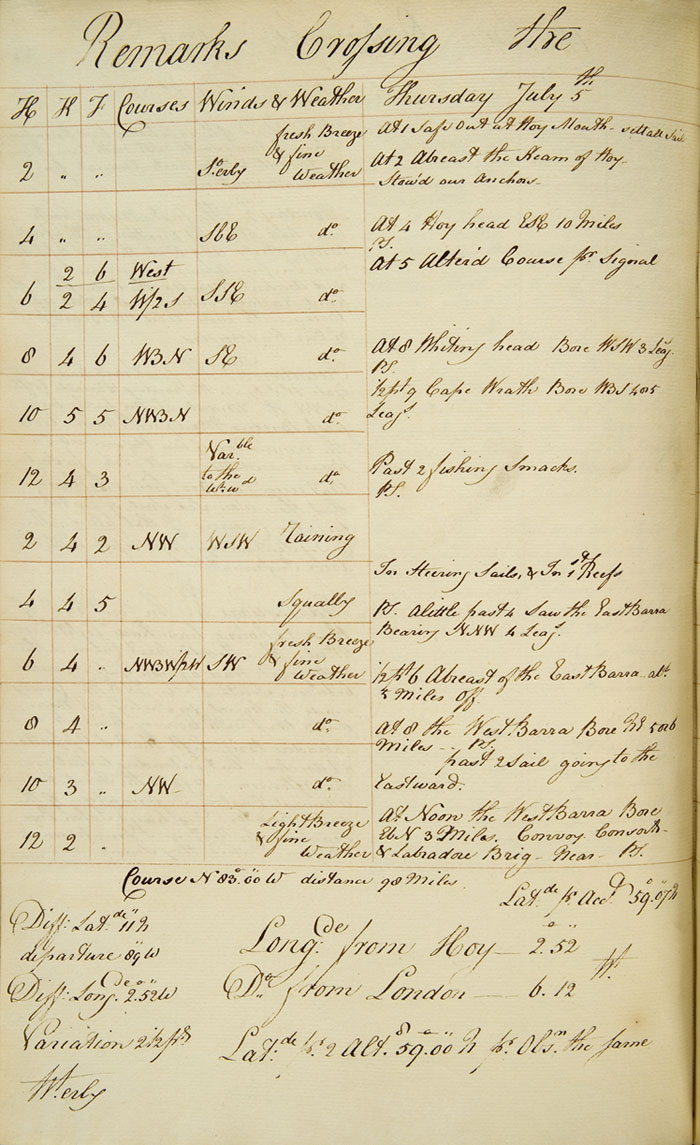 Remarks Crossing the
H K F Courses Winds & Weather Thursday July 5th
2 " " So.erly fresh Breeze & fine Weather At 1 Safe Out at Hoy Mouth
At 2 Abreast the Beam of Hoy
Stow'd our Anchors
4 " " SbE do. At 4 Hoy head ESE 10 Miles
PS.
2 6 West At 5 Alter'd Course pr. Signal
6 2 4 W½S SSE do.
8 4 6 WBN SE do. At 8 Whiting head Bore WSW 3 Leag.
PS.
½ pt 9 Cape Wrath Bore WBS 4 or 5
10 5 5 NWBN do. Leag.
12 4 3 Var.ble to the W.wd do. Past 2 fishing Smacks.
PS.
2 4 2 NW WSW Raining
In Steering Sails, & In 1st Reefs
4 4 5 Squally PS. A little past 4 Saw the East Barra
Bearing NNW 4 Leag.
6 4 " NWBW½W SW fresh Breeze & fine Weather ½ pt 6 Abreast of the East Barra abt.
Miles off.
8 4 " do. At 8 the West Barra Bore NE 5 or 6
Miles PS.
past 2 Sail going to the
10 3 " NW do. Eastward.
12 2 " Light Breeze & fine Weather At Noon the West Barra Bore
EbN 3 Miles. Convoy Consorts
& Labradore Brig Near PS.
Course N 83°.00 W distance 98 Miles.
Lat.de pr Acc. 59.07 N
Diff: Lat.de 11 N
departure 89 W
Long.de from Hoy 2.52
Diff: Long.de 2.52 W
Do. from London 6.12 Wt.
Variation 2½ pts
Lat.de pr. 2 Alt.s 59.00 N pr. Obs.n the same
Wt.erly